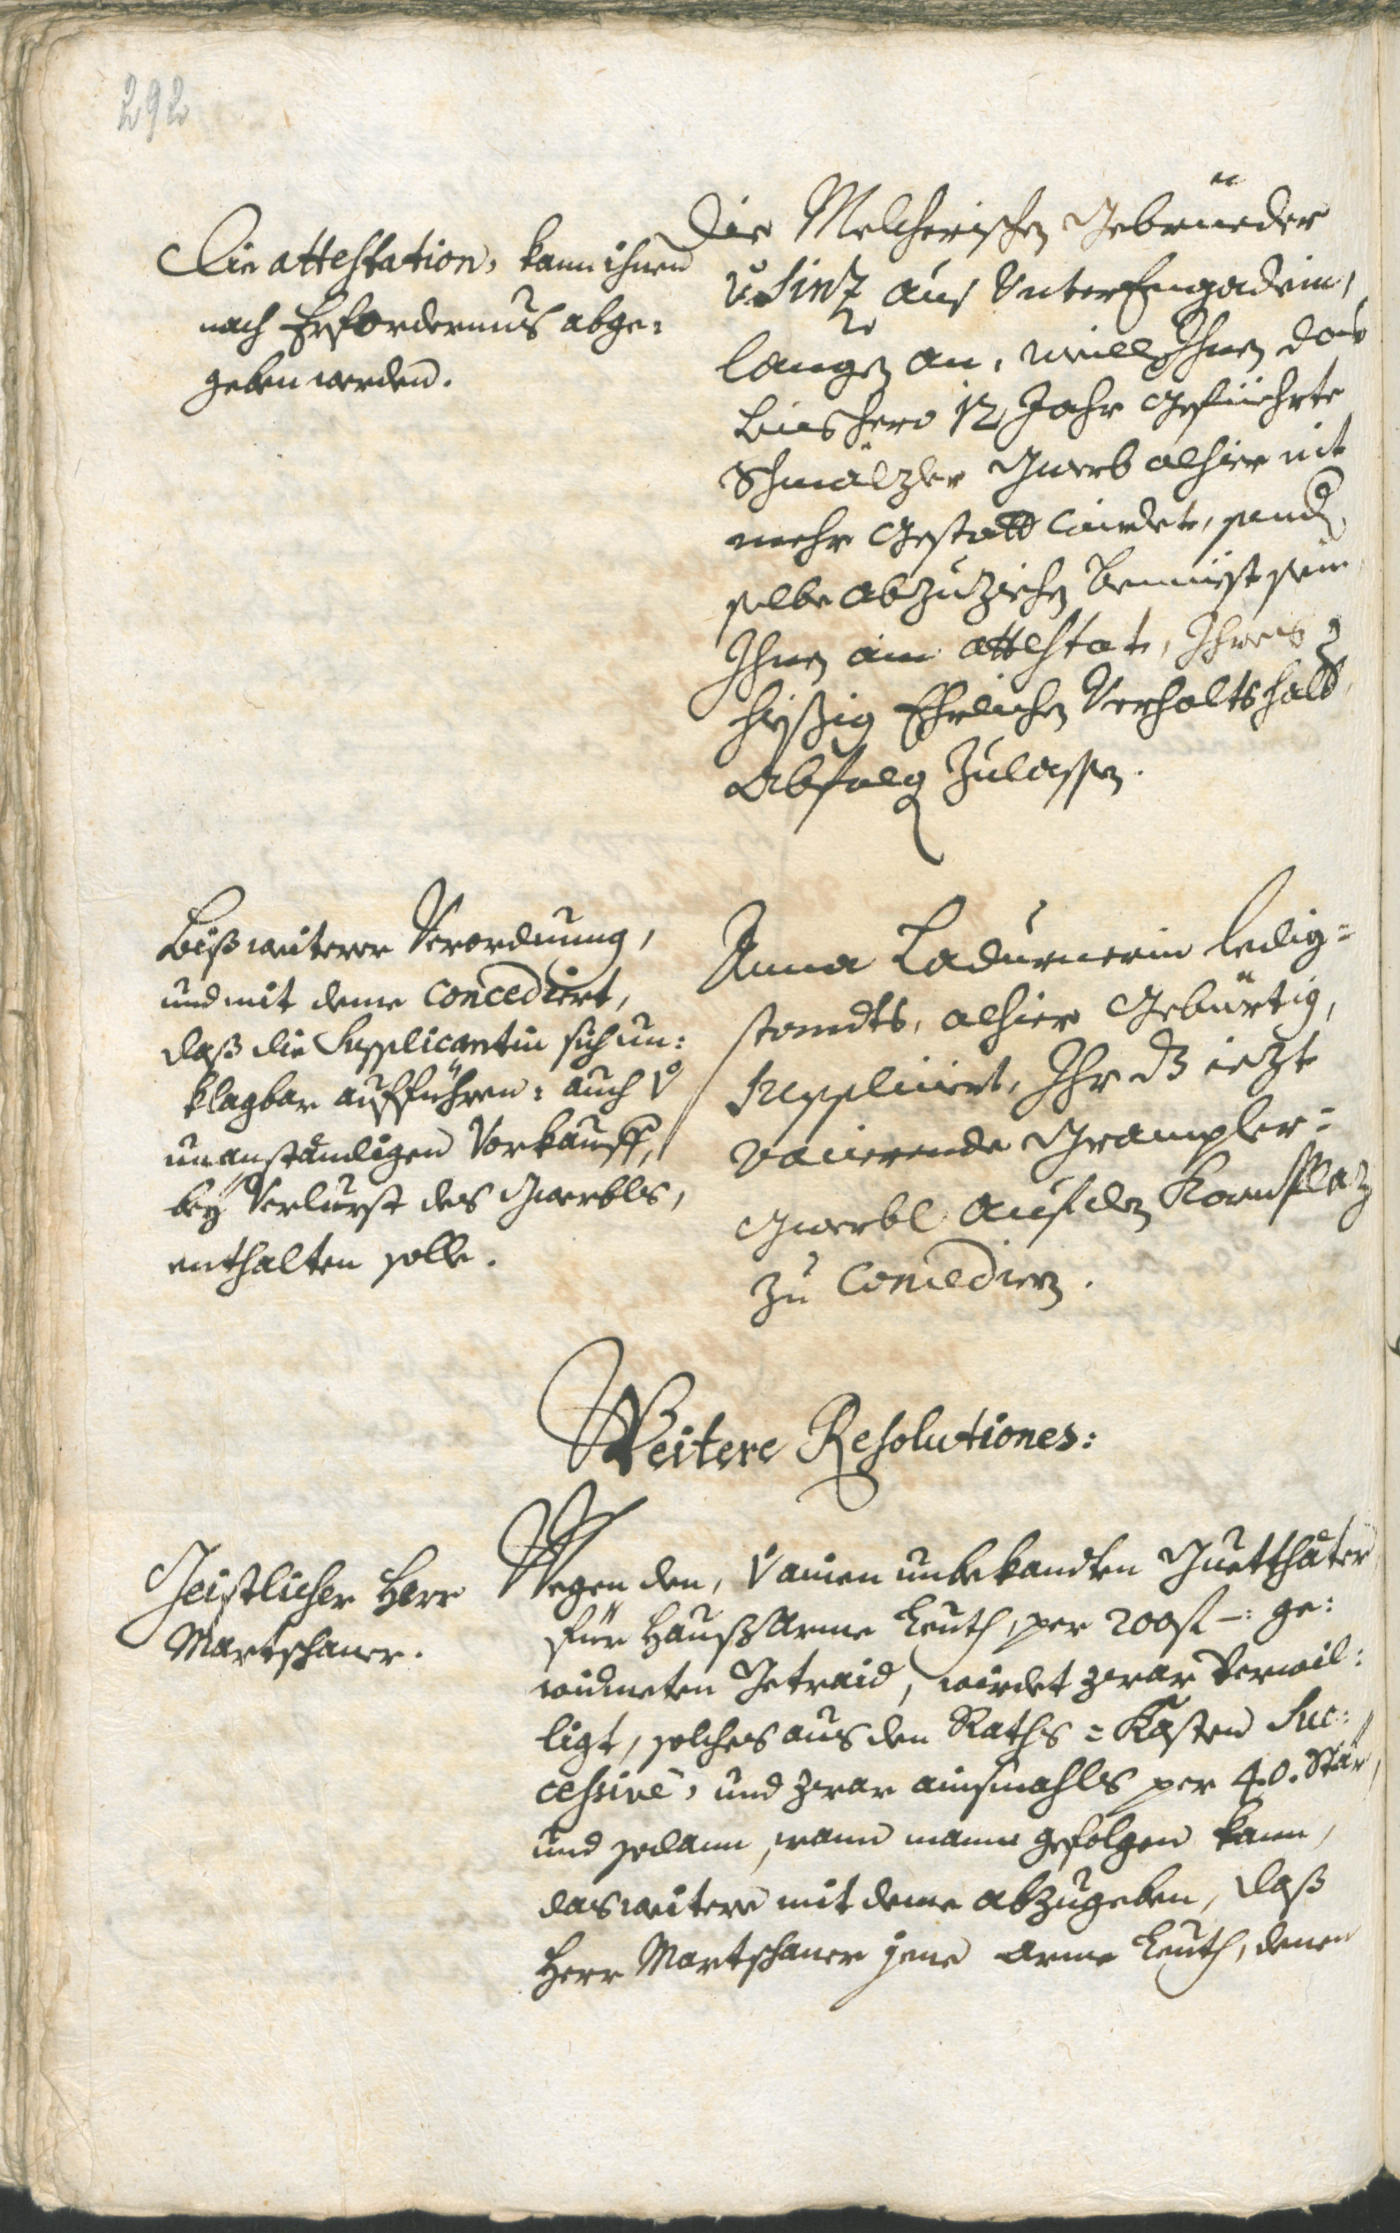 292
Die attestation, kann ihnen
nach Erfordernus abge:
geben werden.
Die Melcherischen Gebrüeder
v. Sinz aus Unter Engadein,
langen an, weill Ihnen das
bishero 12 Jahr Gefüehrte
Schmälzler Gwerb alhier nit
mehr Gestatt wirdet, und
selbe abzuziehen bemüest sein
Ihnen ain attestat, Ihres
hießig Ehrlichen Verhalts halb
Abfolg Zulassen.
Biß weitere Verordnung,
und mit deme concediert,
daß die Supplicantin sich un:
klagbar aufführen: auch v
unanständigen Vorkauff,
bey Verlurst des Gwerbls,
enthalten solle.
Anna Ladurnerin ledig=
standts, alhier Gebürtig,
Suppliciert, Ihr dz iezt
vacierende Grampler=
Gwerbl auf den Kornplaz
zu concedieren.
Weitere Resolutiones:
Geistlicher Herr
Martschaner.
Wegen den, v ainen unbekandten Guetthäter
für Hauß Arme Leuth, per 200 f –: ge:
widmeten Getraid, wirdet zwar verwil:
ligt, solches aus den Raths=Kasten Suc:
cessivè, und zwar ainsmahls per 40. Stär,
und sodann, wann mann gefolgen kann,
das weitere mit deme abzugeben, daß
Herr Martschaner jene arme Leuth, denen